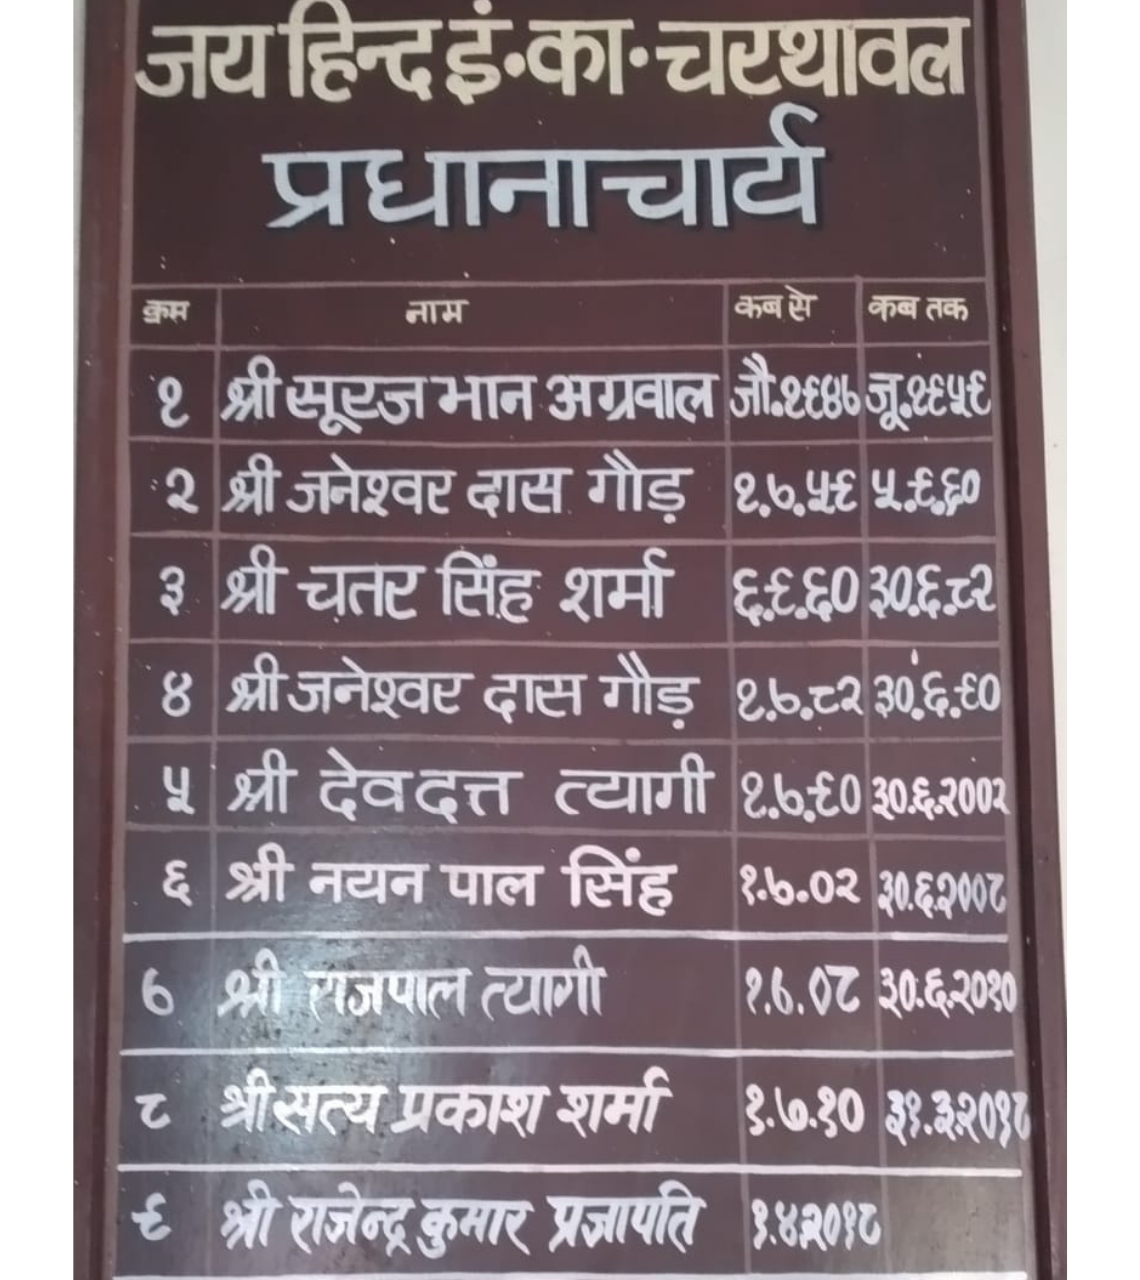 जय हिन्द इं॰का॰चरथावल
प्रधानाचार्य
क्रम नाम कब से कब तक
१ श्री सूरज भान अग्रवाल जौ.१९४७ जू.१९५९
२ श्री जनेश्वर दास गौड़ १.७.५९ ५.९.६०
३ श्री चतर सिंह शर्मा ६.९.६० ३०.६.८२
४ श्री जनेश्वर दास गौड़ १.७.८२ ३०.६.९०
५ श्री देवदत्त त्यागी १.७.९० ३०.६.२००२
६ श्री नयन पाल सिंह १.७.०२ ३०.६.२००८
७ श्री राजपाल त्यागी १.७.०८ ३०.६.२०१०
८ श्री सत्य प्रकाश शर्मा १.७.१० ३१.३.२०१८
९ श्री राजेन्द्र कुमार प्रजापति १.४.२०१८